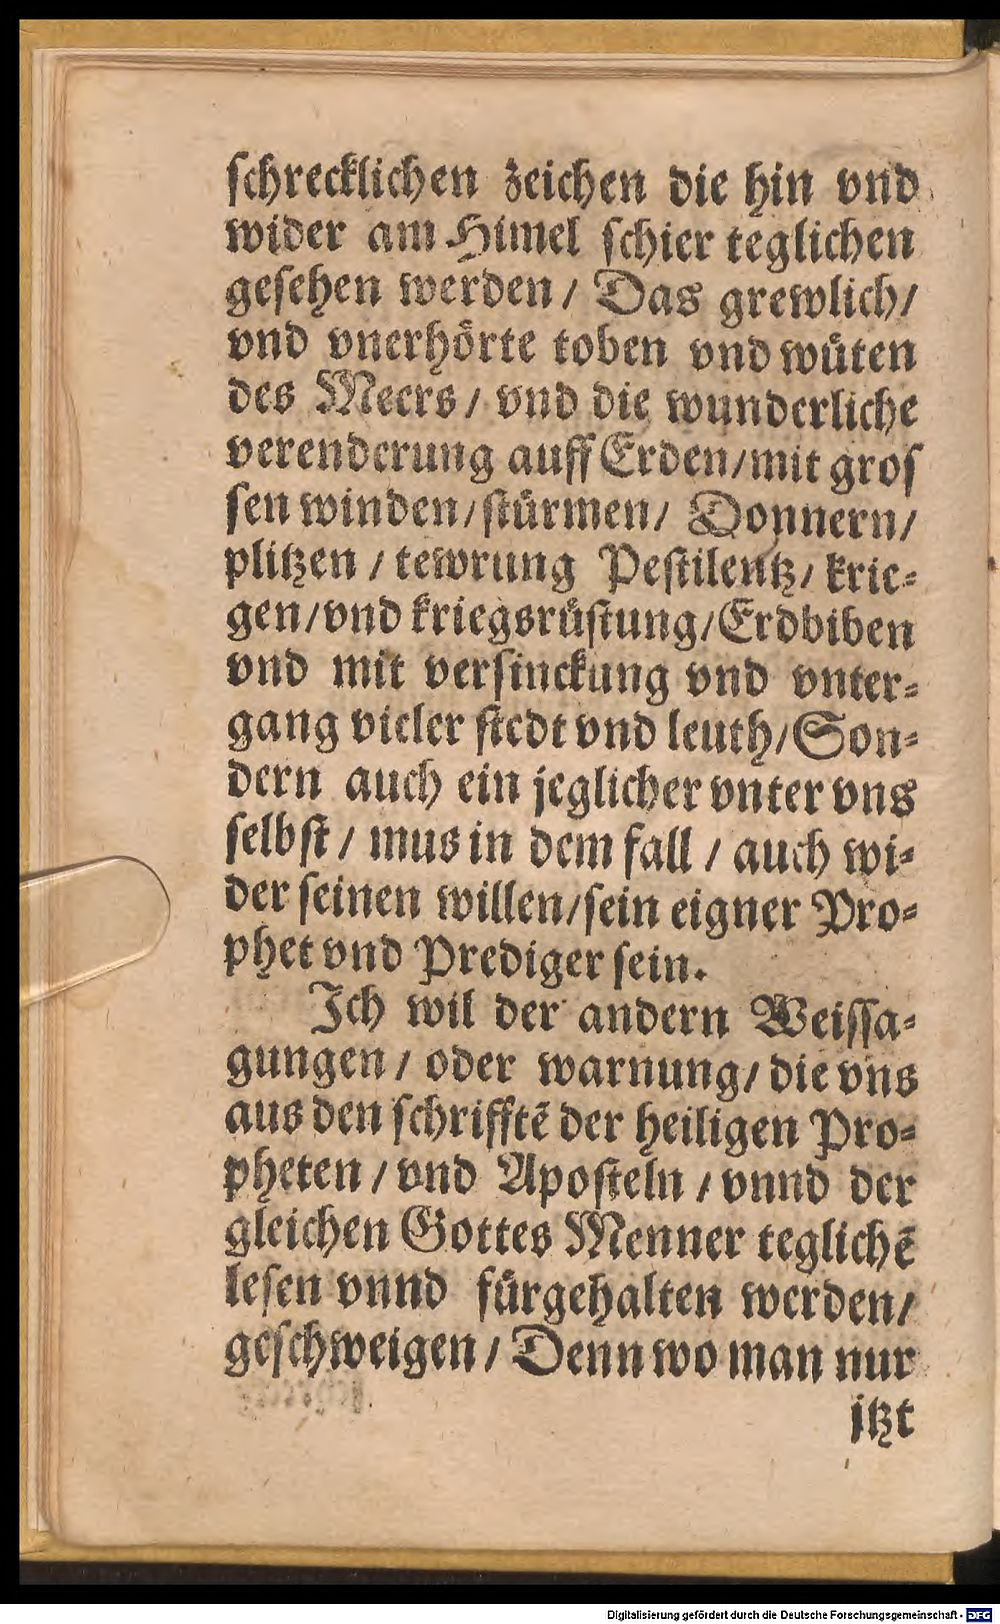 ſchrecklichen zeichen die hin vnd
wider am Himel ſchier teglichen
geſehen werden / Das grewlich /
vnd vnerhoͤrte toben vnd wuͤten
des Meers / vnd die wunderliche
verenderung auff Erden / mit groſ
ſen winden / ſtuͤrmen / Donnern /
plitzen / tewrung Peſtilentz / krie⸗
gen / vnd kriegsruͤſtung / Erdbiben
vnd mit verſinckung vnd vnter⸗
gang vieler ſtedt vnd leuth / Son⸗
dern auch ein jeglicher vnter vns
ſelbſt / mus in dem fall / auch wi⸗
der ſeinen willen / ſein eigner Pro⸗
phet vnd Prediger ſein.
Ich wil der andern Weiſſa⸗
gungen / oder warnung / die vns
aus den ſchrifftē der heiligen Pro⸗
pheten / vnd Apoſteln / vnnd der
gleichen Gottes Menner teglichē
leſen vnnd fuͤrgehalten werden /
geſchweigen / Denn wo man nur
itzt
Digitalisierung gefördert durch die Deutsche Forschungsgemeinschaft - DFG